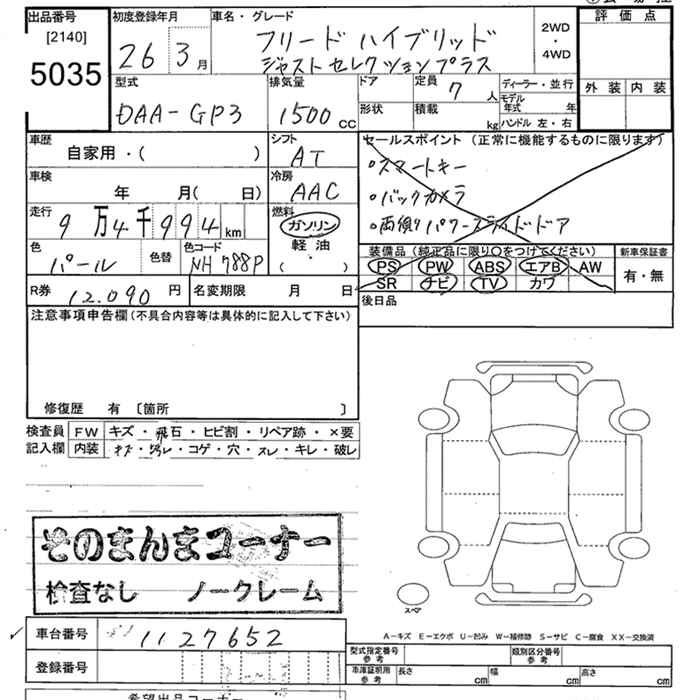 出品番号
[2140]
5035
初度登録年月
26 3月
車名・グレード
フリード ハイブリッド
ジャストセレクションプラス
2WD
・
4WD
評価点
外装 内装
型式
DAA-GP3
排気量
1500cc
ドア
定員 7人
形状
積載 kg
ディーラー・並行
モデル年式 年
ハンドル 左・右
車歴
自家用・( )
シフト
AT
セールスポイント(正常に機能するものに限ります)
・スマートキー
・バックカメラ
・両側パワースライドドア
車検
年 月( 日)
冷房
AAC
走行
9万4千994km
燃料
ガソリン
軽油
( )
色
パール
色替
色コード
NH788P
装備品(純正品に限り○をつけてください)
PS PW ABS エアB AW
SR ナビ TV カワ
新車保証書
有・無
R券 12,090円
名変期限 月 日
後日品
注意事項申告欄(不具合内容等は具体的に記入して下さい)
修復歴 有 〔箇所 〕
検査員 FW キズ・飛石・ヒビ割・リペア跡・×要
記入欄 内装 キズ・コゲ・穴・スレ・キレ・破レ
そのまんまコーナー
検査なし ノークレーム
スペア
A-キズ E-エクボ U-凹み W-補修跡 S-サビ C-腐食 XX-交換済
車台番号 1127652
登録番号
型式指定番号 参考
類別区分番号 参考
車庫証明用 参考 長さ cm 幅 cm 高さ cm
希望出品コーナー